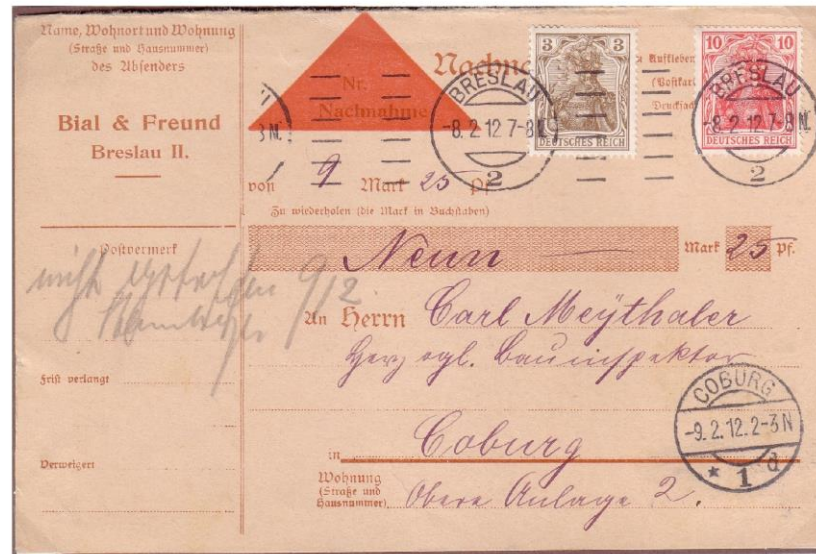 Name, Wohnort und Wohnung
(Straße und Hausnummer)
des Absenders
Bial & Freund
Breslau II.
Postvermerk
nicht 9/2
Frist verlangt
Verweigert
Nr.
Nachnahme
Nachn
e Aufkleben
(Postkart
Drucksach
3
3
DEUTSCHES REICH
10
10
DEUTSCHES REICH
3 N.
BRESLAU
-8.2.12.7-8N.
2
BRESLAU
-8.2.12.7-8N.
2
von 9 Mark 25 Pf.
Zu wiederholen (die Mark in Buchstaben)
Neun Mark 25 Pf.
An Herrn Carl Meÿthaler
Herzogl. Bauinspektor
in Coburg
Wohnung
(Straße und
Hausnummer)
Obere Anlage 2.
COBURG
-9.2.12.2-3N
* 1 d